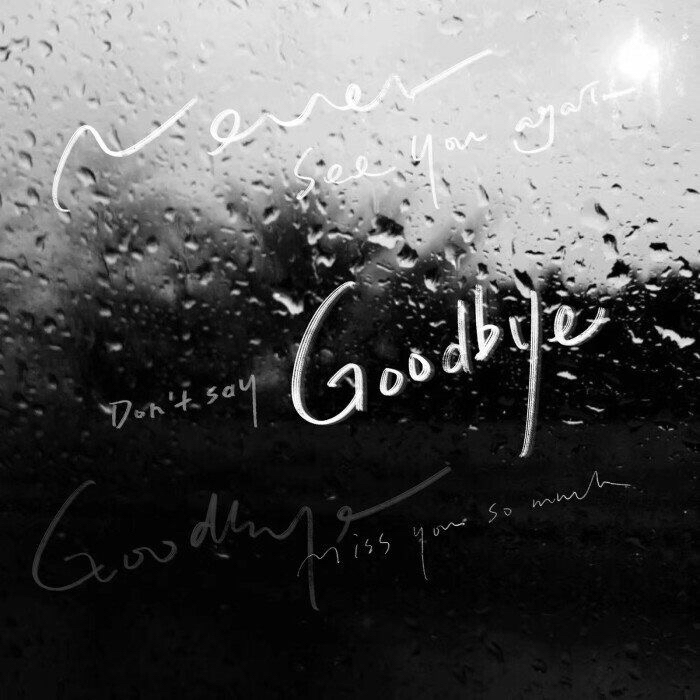 Never
see you again
Don't say Goodbye
Goodbye
miss you so much